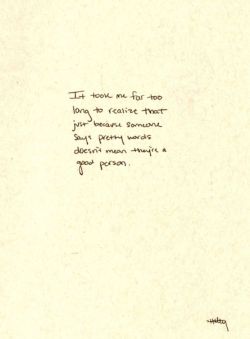 It took me far too
long to realize that
just because someone
says pretty words
doesn't mean they're a
good person.